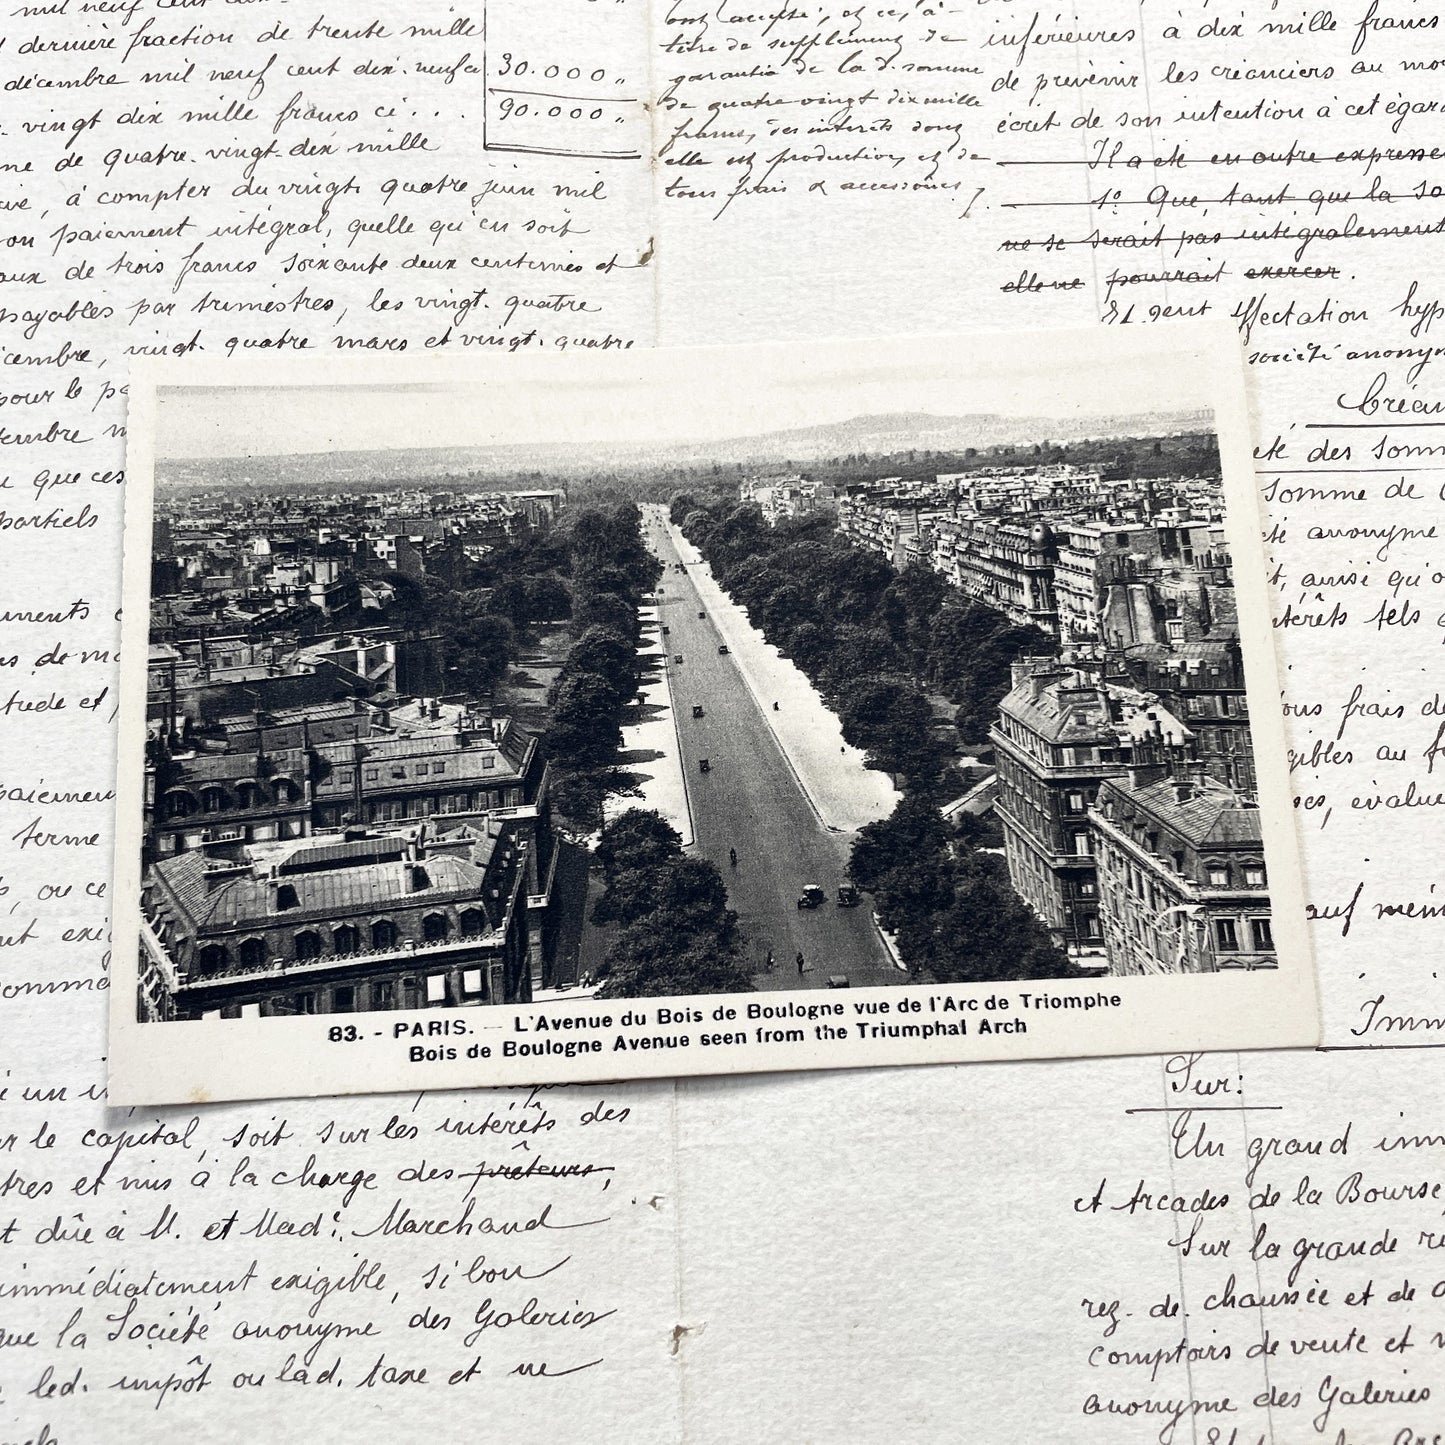 mil neuf cent
dernière fraction de trente mille
décembre mil neuf cent dix-neuf ci
30.000 "
vingt dix mille francs ci . . .
90.000 "
ne de quatre-vingt-dix mille
à compter du vingt quatre juin mil
on paiement intégral, quelle qu'en soit
aux de trois francs soixante deux centimes et
payables par trimestres, les vingt-quatre
cembre, vingt-quatre mars et vingt-quatre
pour le
tembre
que ces
partiels
uments
de
et
paiement
terme
, ou ce
exi
comma
ont accepté, et ce, à
titre de supplément de
garantie de la d. somme
de quatre vingt dix mille
francs, des intérêts dont
elle est productive, et de
tous frais & accessoires /.
inférieures à dix mille francs
de prévenir les créanciers au mo
écrit de son intention à cet égard
Il a été en outre expressé
1º Que, tant que la so
ne se serait pas intégralement
elle ne pourrait exercer.
ffectation hyp
société anonym
Créan
été des somm
somme de
té anonyme
t, ainsi qu'
térêts tels
ous frais de
gibles au
ses, évalu
auf mêm
Imm
83. - PARIS. — L'Avenue du Bois de Boulogne vue de l'Arc de Triomphe
Bois de Boulogne Avenue seen from the Triumphal Arch
i un
r le capital, soit sur les intérêts des
tres et mis à la charge des prêteurs,
t dûe à M. et Mad. Marchand
immédiatement exigible, si bon
que la Société anonyme des Galeries
led. impôt ou lad. taxe et ne
Sur:
Un grand imm
et Arcades de la Bourse,
Sur la grande
rez-de-chaussée et de
comptoirs de vente et
anonyme des Galeries